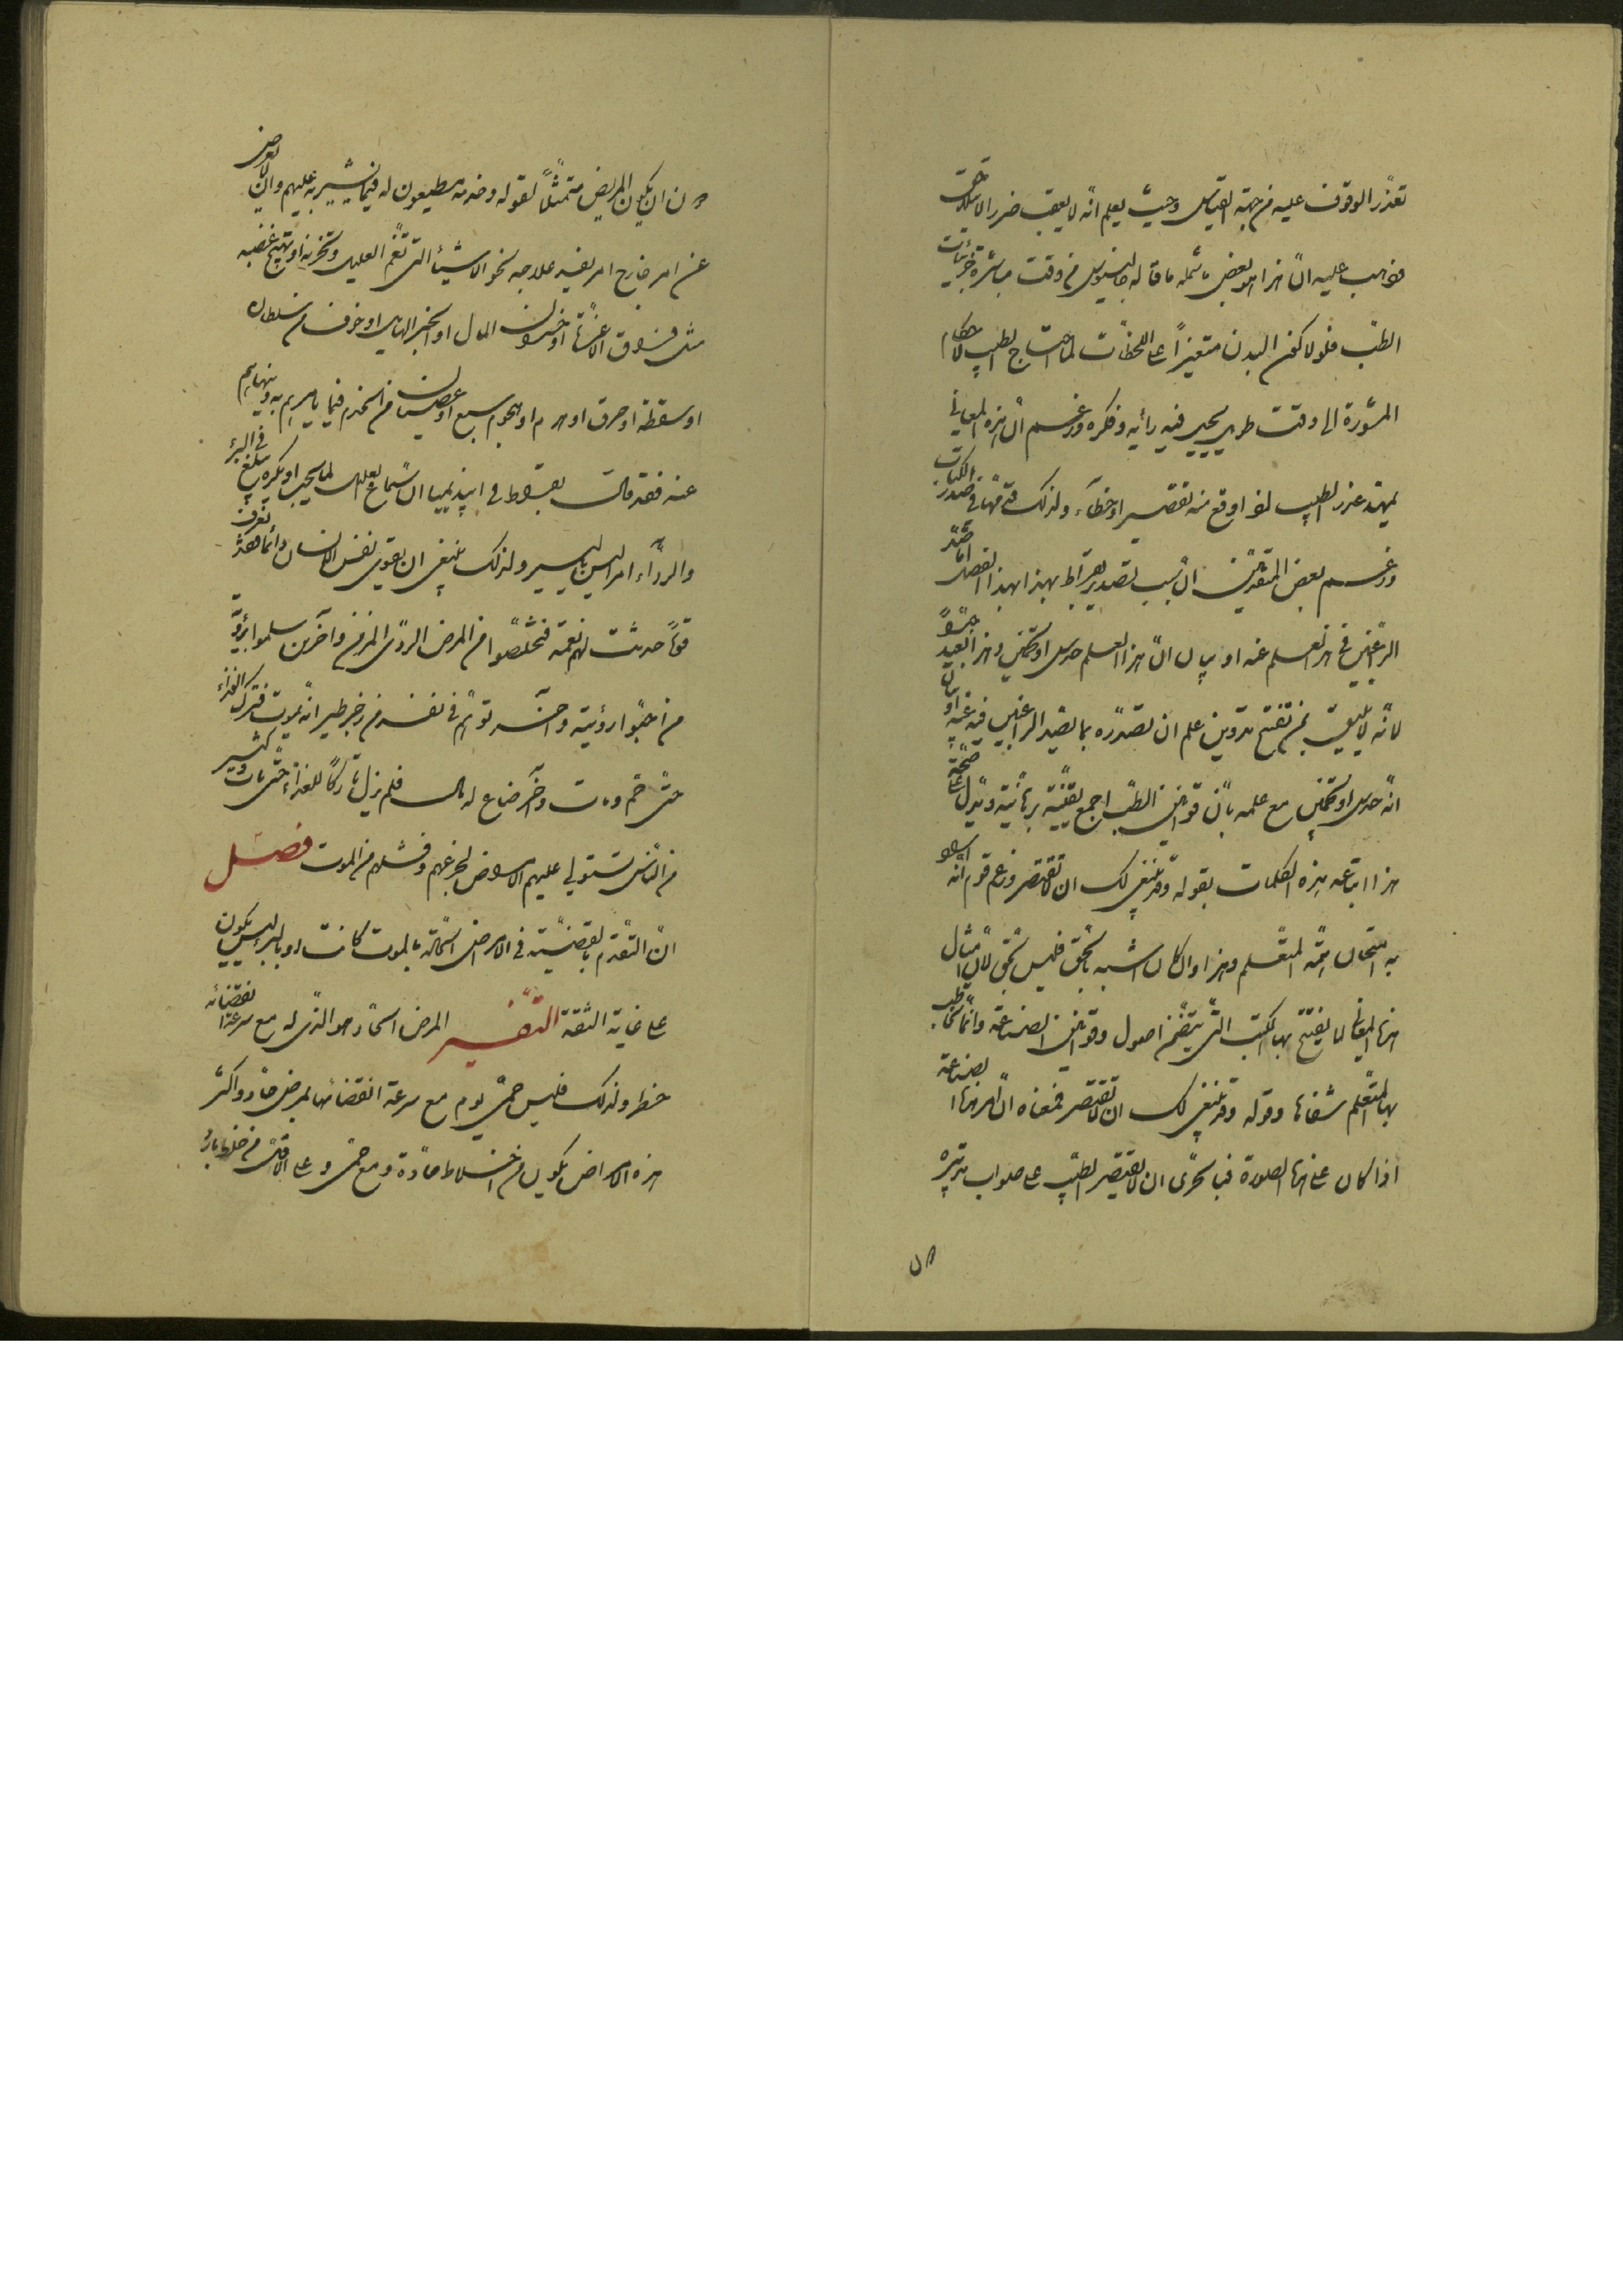 تعذّر الوقوف عليه من جهة القياس وحيث يعلم انّه لا يعقب ضرر الا سلامة
فواجب عليه انّ هذا هو بعض ما شمله ما قاله جالينوس في وقت مباشرة جزئيات
الطبّ فلولا كون البدن متغيراً على اللحظات لما احتاج الطبيب لاحكام
المشورة الى وقت طويل يجيل فيه رأيه وفكره وزعم انّ هذه المعاني
تمهّد عذر الطبيب لو اوقع منه تقصير او خطاء ولذلك قدّمها في صدر الكتاب
وزعم بعض المتقدّمين انّ سبب تصدير بقراط بهذا الفصل امّا صدّ
الراغبين في هذا العلم عنه او بيان انّ هذا العلم حدس او تخمين وهذا بعيد جدّاً
لانّه لا يليق بمن تفتح تدوين علم ان تصدّره بما يصدّ الراغبين فيه عنه او بيان
انّه حدس او تخمين مع علمه بانّ قوانين الطبّ اجمع يقينية برهانية ويدلّ على صحّة
هذا اتباعه هذه الكلمات بقوله وقد ينبغي لك ان لا تقتصر وزعم قوم انّه اراد
به امتحان همّة المتعلم وهذا وان كان اشبه بالحق فليس بحق لانّ امثال
هذه المعاني لا يفتتح بها الكتب التي يتضمّن اصول وقوانين الصناعة وانّما يخاطب
بها المتعلّم شفاها وقوله وقد ينبغي لك ان لا تقتصر فمعناه انّ امر هذه الصناعة
اذا كان على هذه الصورة فبالحرى ان لا يقتصر الطبيب على صواب تدبيره
دون
دون ان يكون المريض متمثلاً لقوله وخدمه مطيعون له فيما يشير به عليهم وان لا يعوض
عن امر خارج امر يفسد علاجه نحو الاشياء التي تغم العليل وتحزنه او تهيج غضبه
مثل فراق الاعزّة او خسران المال او الخبر الهائل او خوف من سلطان
او سقطة او حرق او هدم او هجوم سبع او عصيان من الخدم فيما يأمرهم به وينهاهم
عنه فقد قال بقراط في ابيذيميا ان استماع العليل لما يحب او يكره يبلغ في البرء
والرداءة امراً ليس باليسير ولذلك ينبغي ان يقوى نفس الانسان دائماً فقد نعرف
قوماً حدثت لهم نعمة فتخلّصوا من المرض الردى المزمن وآخرين سلموا برؤية
من احبّوا رؤيته وآخر توهّم في نفسه من زجر طير انّه يموت فترك الغذاء
حتى حمّ ومات وآخر ضاع له مال فلم يزل تاركاً للغذاء حتى مات وكثير
من الناس تستولي عليهم الامراض لجزعهم وفشلهم من الموت فصل
انّ التقدّم بالقضيّة في الامراض الحادّة بالموت كانت او بالبرء ليس يكون
على غاية الثقة التفسير المرض الحادّ هو الذي له مع سرعة انقضائه
خطر ولذلك فليس حمّى يوم مع سرعة انقضائها بمرض حادّ واكثر
هذه الامراض يكون من اخلاط حادّة ومع حمّى وعلى الاقلّ من خلط بارد